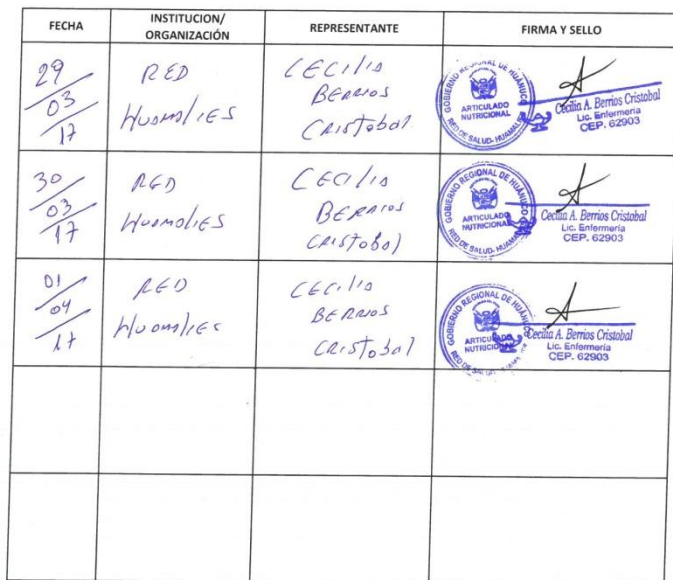 FECHA
INSTITUCION/
ORGANIZACIÓN
REPRESENTANTE
FIRMA Y SELLO
29/03/17
RED
Huamalies
CECILIA
BERRIOS
Cristobal
GOBIERNO REGIONAL DE HUÁNUCO
ARTICULADO
NUTRICIONAL
RED DE SALUD - HUAMALIES
Cecilia A. Berrios Cristobal
Lic. Enfermería
CEP. 62903
30/03/17
RED
Huamalies
CECILIA
BERRIOS
Cristobal
GOBIERNO REGIONAL DE HUÁNUCO
ARTICULADO
NUTRICIONAL
RED DE SALUD - HUAMALIES
Cecilia A. Berrios Cristobal
Lic. Enfermería
CEP. 62903
01/04/17
RED
Huamalies
CECILIA
BERRIOS
Cristobal
GOBIERNO REGIONAL DE HUÁNUCO
ARTICULADO
NUTRICIONAL
RED DE SALUD - HUAMALIES
Cecilia A. Berrios Cristobal
Lic. Enfermería
CEP. 62903